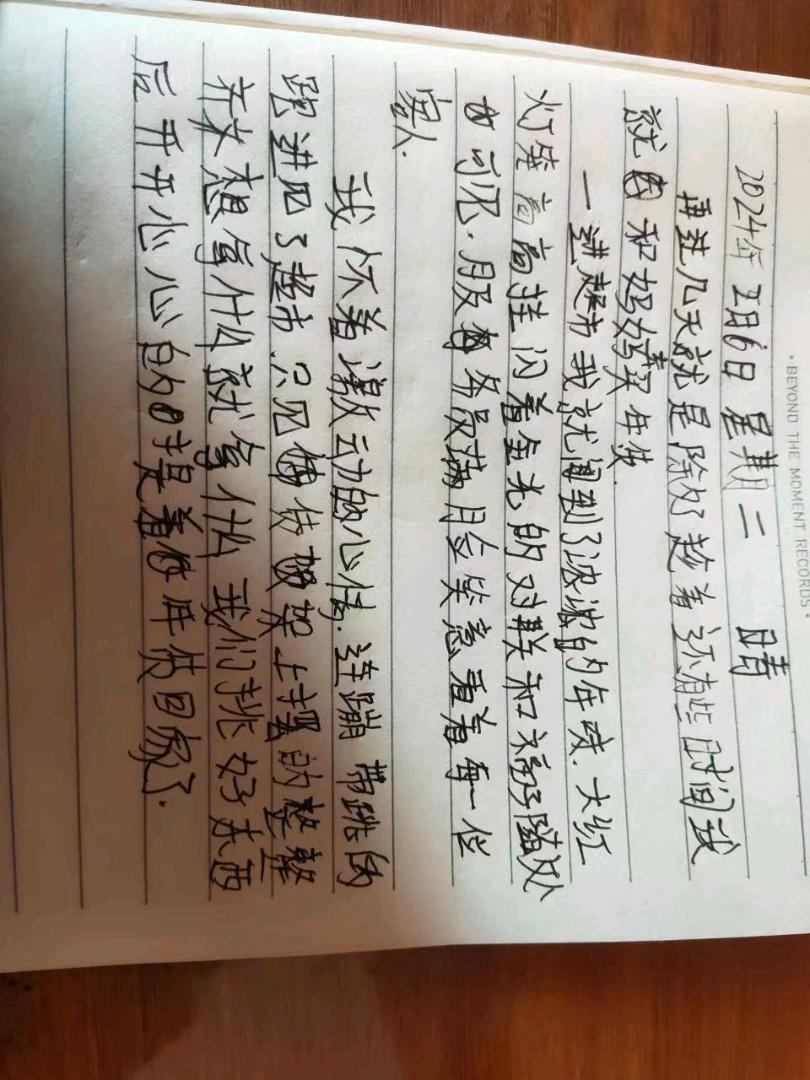 • BEYOND THE MOMENT RECORDS •
2024年 2月6日 星期二 晴
再过几天就是除夕趁着还有些时间我
就 和妈妈买年货
一进超市我就闻到了浓浓的年味.大红
灯笼高高挂闪着金光的对联和福字随处
可见.服务员满目含笑意看着每一位
客人.
我怀着激动的心情.连蹦带跳的
跑进了超市.只见 货架上摆的整整
齐齐想拿什么就拿什么我们挑好东西
后开开心心的提着年货回家了.